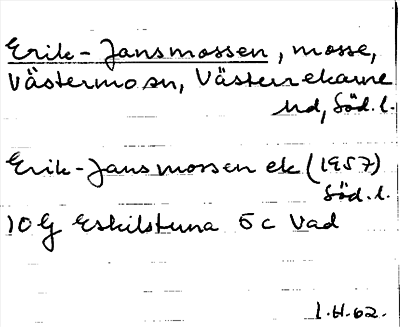 Erik-Jansmossen, mosse,
Västermosn, Västerrekarne
hd, Söd. l.
Erik-Jansmossen ek (1957)
Söd. l.
10G Eskilstuna 5c Vad
I.H.62.